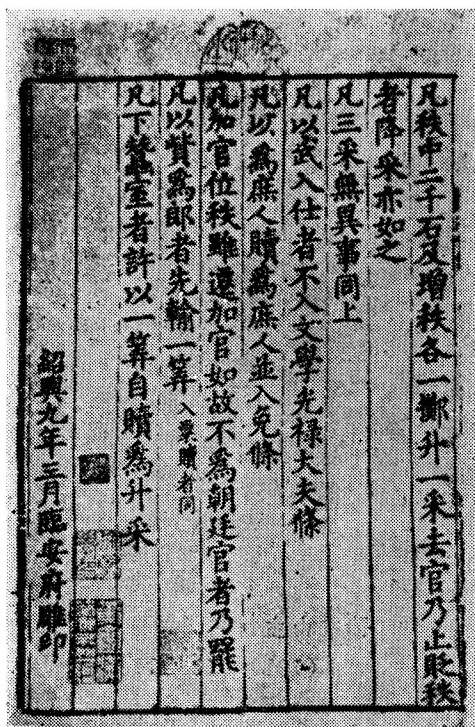 凡秩中二千石及增秩各一擲升一采去官乃止貶秩
者降采亦如之
凡三采無異事同上
凡以武入仕者不入文學光祿大夫條
凡以爲庶人贖爲庶人並入免條
凡加官位秩雖遷加官如故不爲朝廷官者乃罷
凡以貲爲郎者先輸一筭入粟贖者同
凡下蠶室者許以一筭自贖爲升采
紹興九年三月臨安府雕印